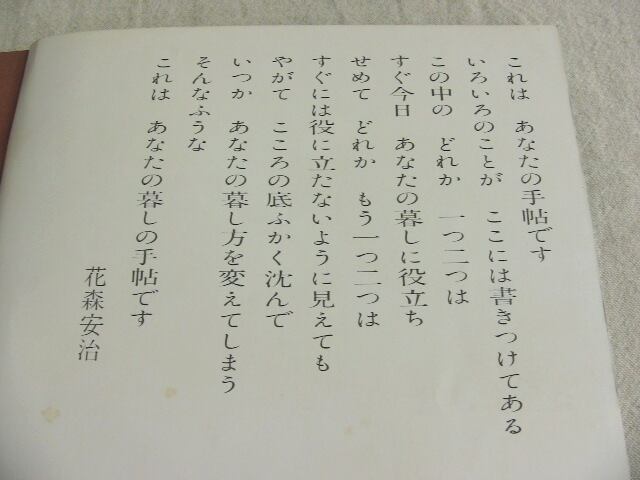 これは　あなたの手帖です
いろいろのことが　ここには書きつけてある
この中の　どれか　一つ二つは
すぐ今日　あなたの暮しに役立ち
せめて　どれか　もう一つ二つは
すぐには役に立たないように見えても
やがて　こころの底ふかく沈んで
いつか　あなたの暮し方を変えてしまう
そんなふうな
これは　あなたの暮しの手帖です
花森安治